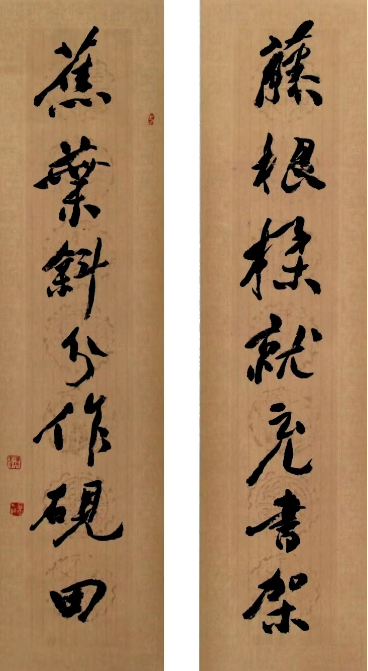 藤根揉就充書架
蕉葉斜分作硯田